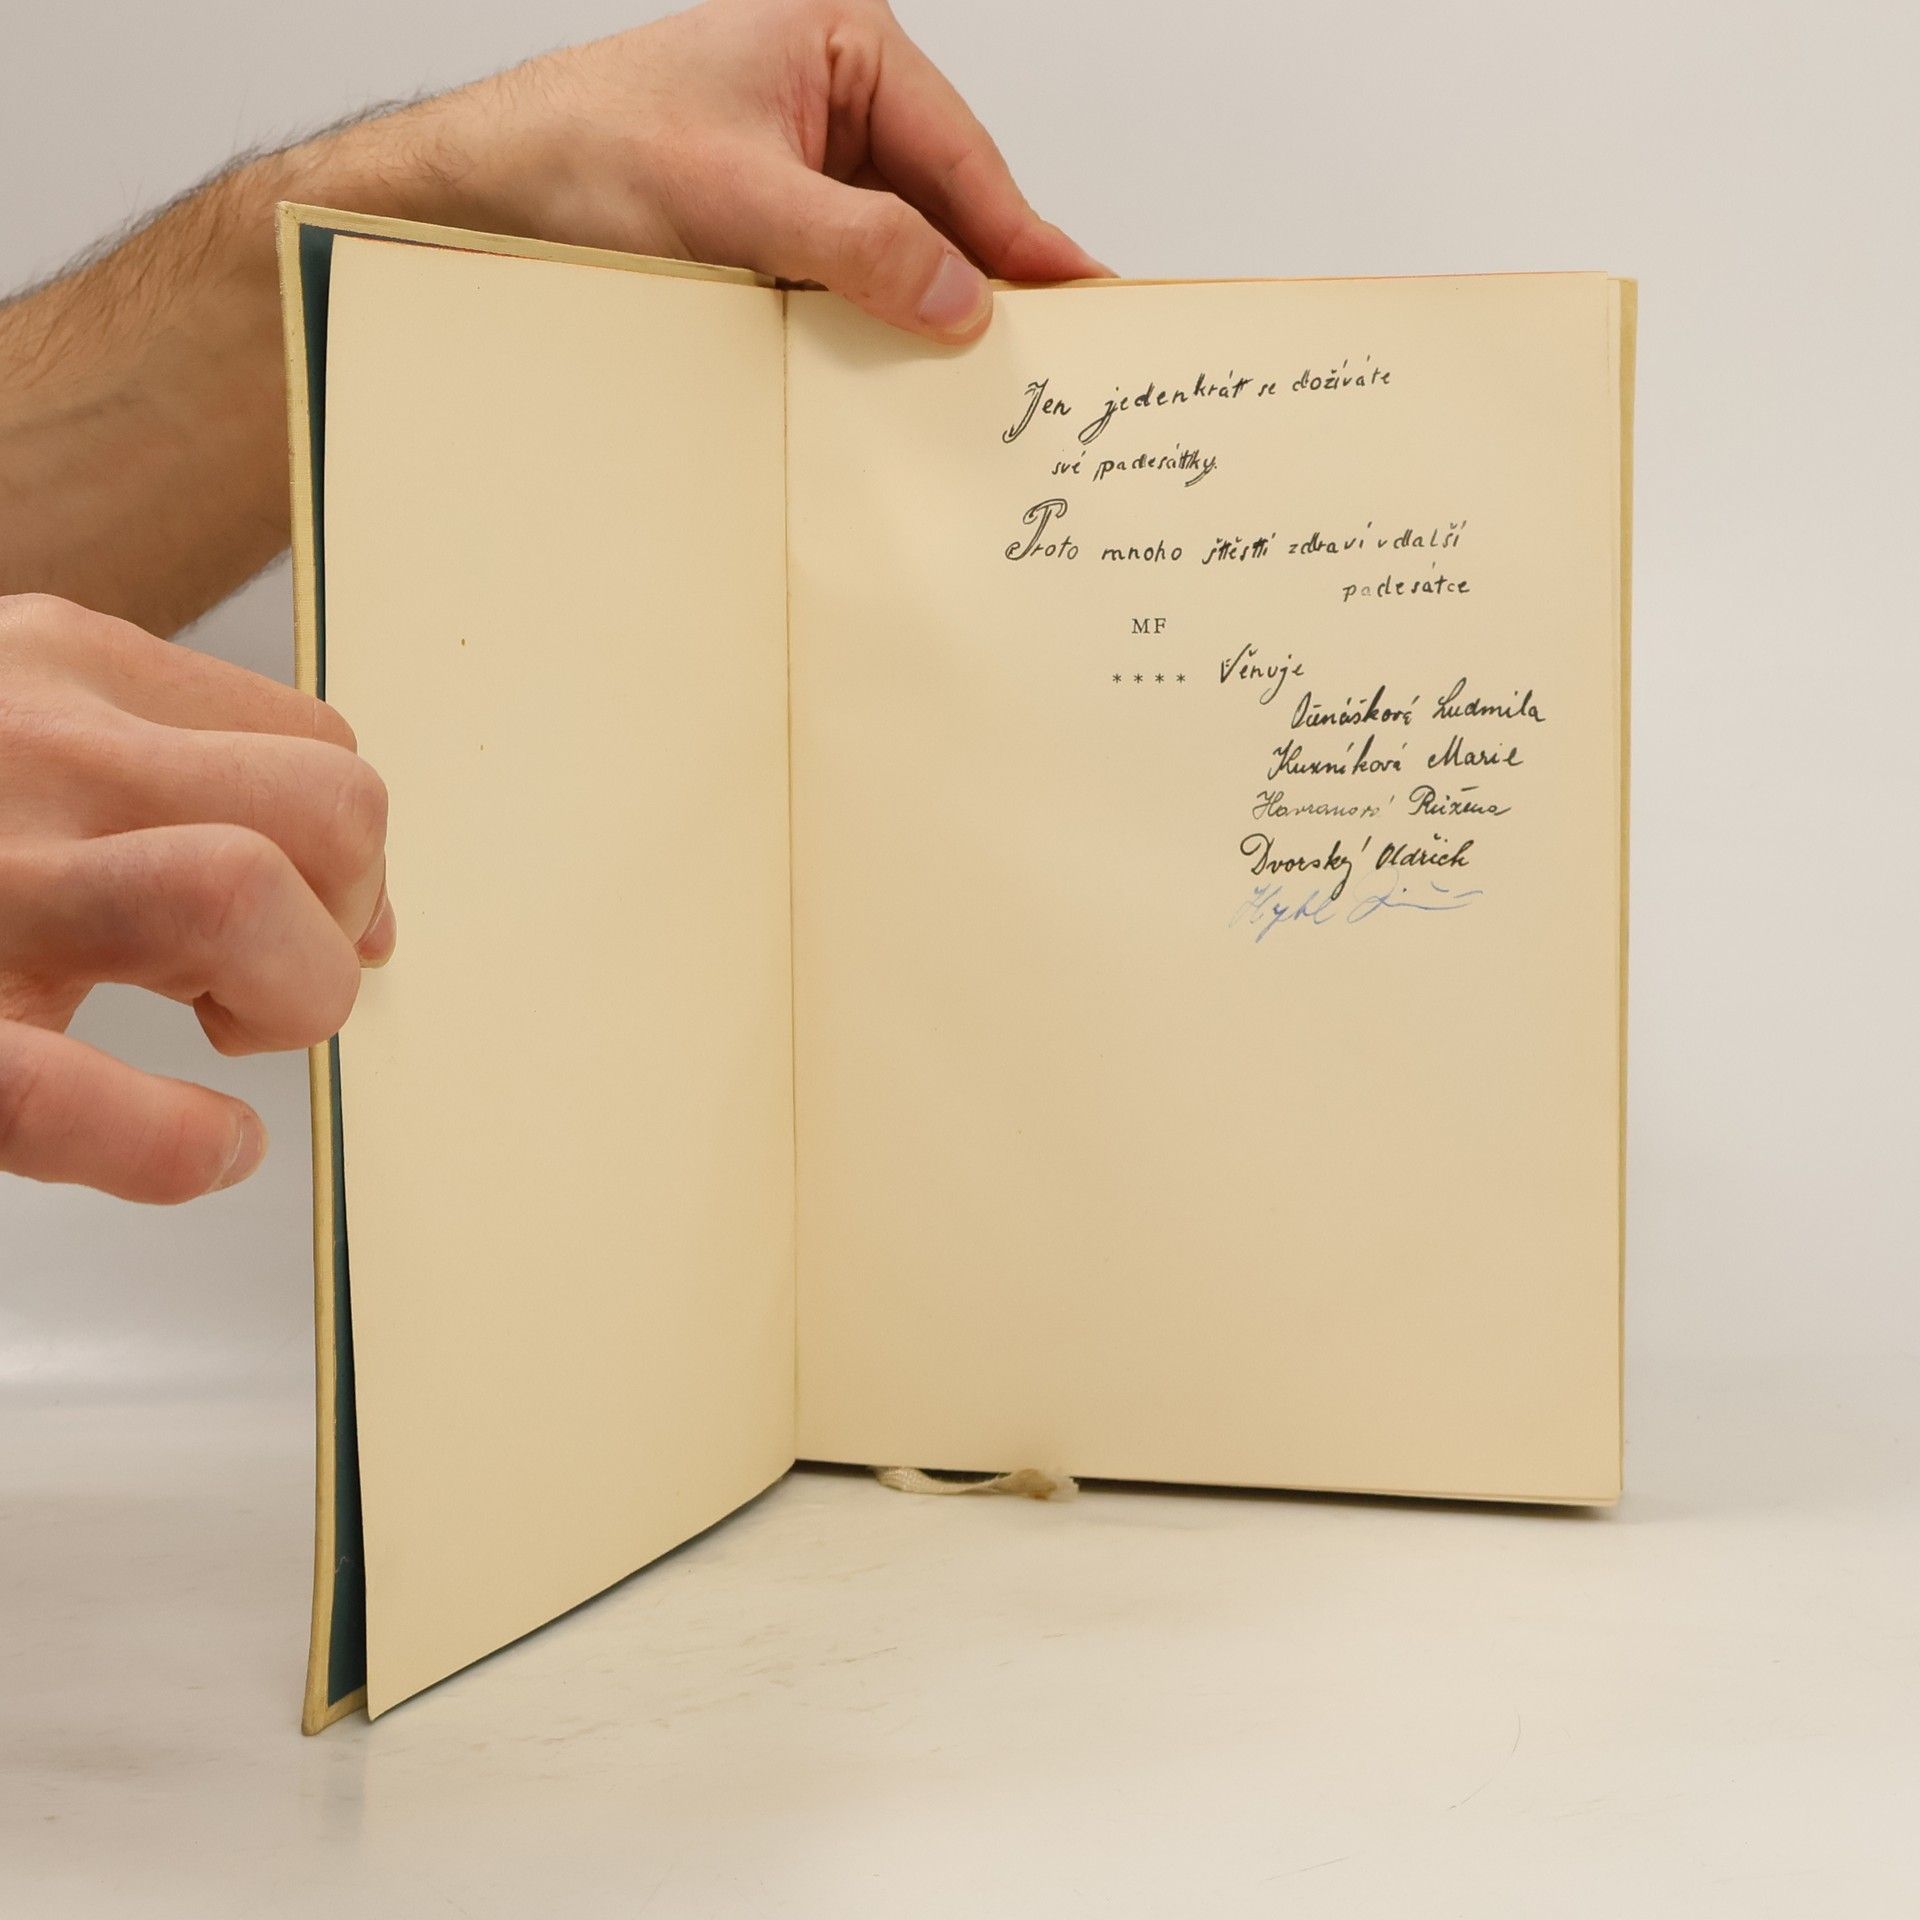 Jen jedenkrát se dožíváte
své padesátky.
Proto mnoho štěstí zdraví v další
padesátce
MF
* * * * Věnuje
Ludmila
Kuxníková Marie
Havranová Růžena
Dvorský Oldřich
Hybl